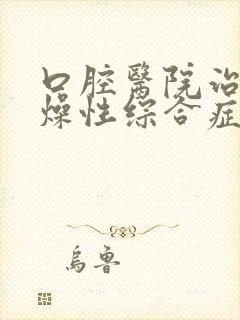 口腔醫院治
燥性綜合症
烏魯